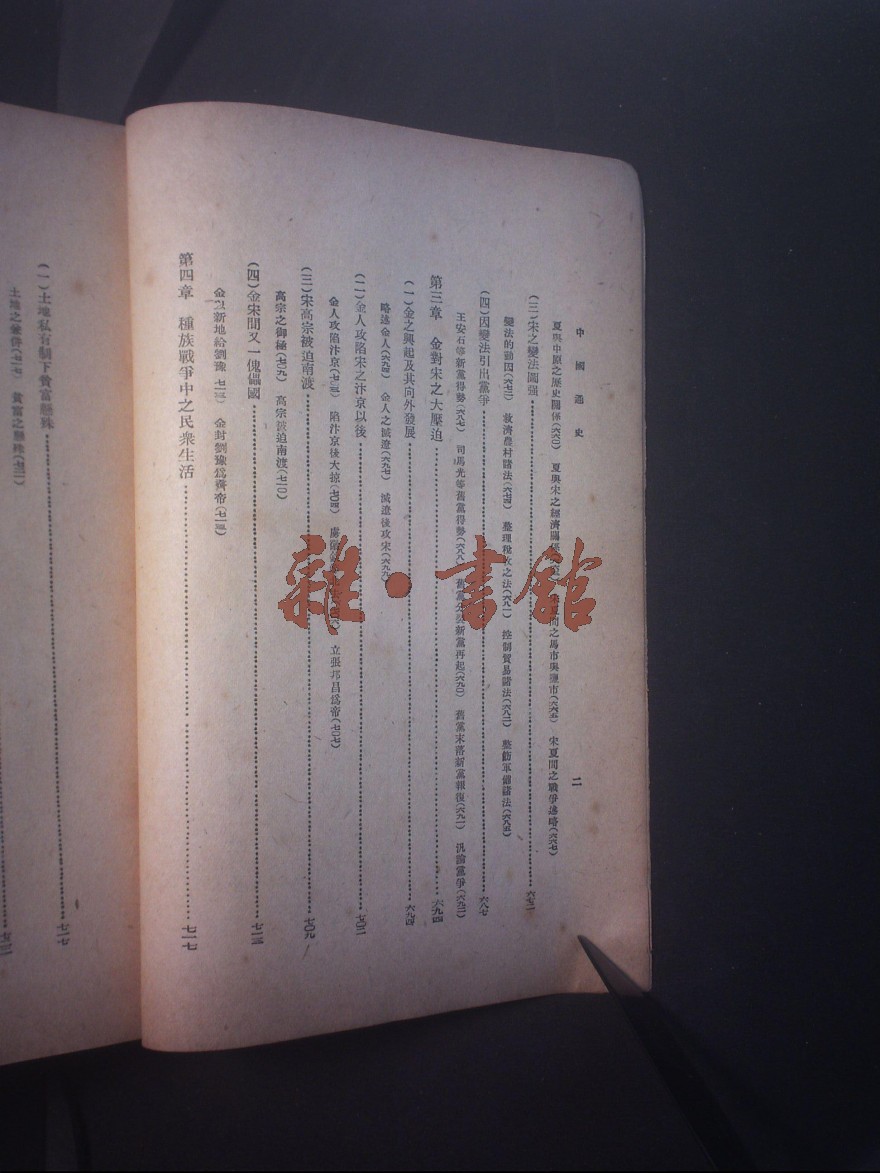 中國通史
二
夏與中原之歷史關係(六六〇) 夏與宋之經濟關係 間之馬市與鹽市(六六五) 宋夏間之戰爭述略(六六七)
(三)宋之變法圖强……六七二
變法的動因(六七二) 救濟農村諸法(六七四) 整理稅收之法(六八一) 控制貿易諸法(六八二) 整飭軍備諸法(六八五)
(四)因變法引出黨爭……六八七
王安石等新黨得勢(六八七) 司馬光等舊黨得勢(六八八) 舊黨分裂新黨再起(六九〇) 舊黨末落新黨報復(六九一) 汎論黨爭(六九二)
第三章 金對宋之大壓迫……六九四
(一)金之興起及其向外發展……六九四
略述金人(六九四) 金人之滅遼(六九七) 滅遼後攻宋(六九九)
(二)金人攻陷宋之汴京以後……七〇二
金人攻陷汴京(七〇二) 陷汴京後大掠(七〇四) 立張邦昌爲帝(七〇七)
(三)宋高宗被迫南渡……七〇九
高宗之御極(七〇九) 高宗被迫南渡(七一〇)
(四)金宋間又一傀儡國……七一三
金以新地給劉豫(七一三) 金封劉豫爲齊帝(七一三)
第四章 種族戰爭中之民衆生活……七一七
(一)土地私有制下貧富懸殊……七一七
土地之兼併(七一七) 貧富之懸殊(七二一)
雜·書館